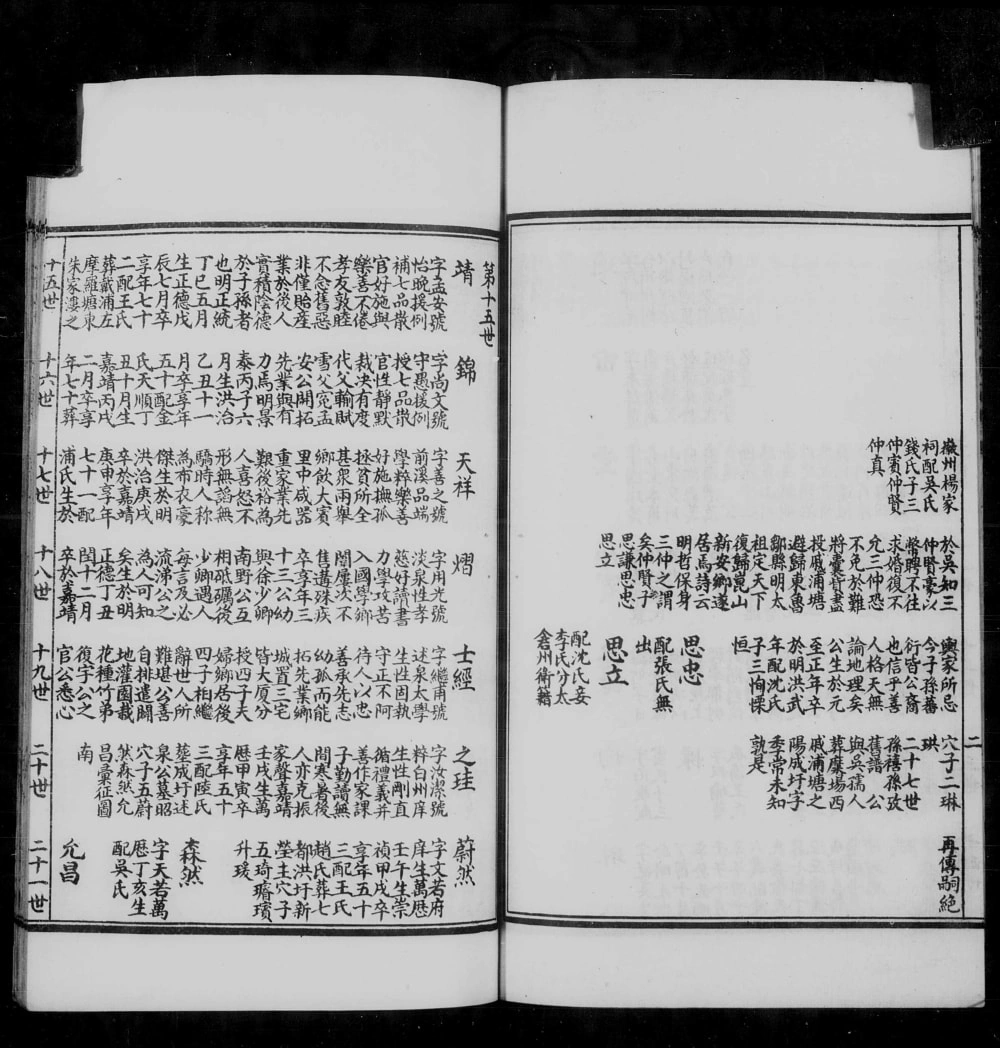 徽州楊家
祠配吳氏
錢氏子三
仲實仲賢
仲真
於吳知三
仲賢豪以
幣聘不往
求婚復不
允三仲恐
不免於難
將橐貲盡
投戚浦塘
避歸東魯
鄒縣明太
祖定天下
復歸崑山
新安鄉遂
居焉詩云
明哲保身
三仲之謂
矣仲賢子
思謙思忠
思立
輿家所忌
今子孫蕃
衍皆公裔
也信乎善
人格天無
論地理矣
公生於元
至正年卒
於明洪武
年配沈氏
子三恂慄
恒
思忠
配張氏無
出
思立
配沈氏妾
李氏分太
倉州衛籍
二
穴子二琳
珙
二十七世
孫禧孫攷
舊譜公
與吳孺人
葬糜場西
戚浦塘之
陽成圩字
季常未知
孰是
再傳嗣絕
第十五世
靖
字孟安號
怡晚援例
補七品散
官好施與
樂善不倦
孝友敦睦
不念舊惡
非僅貽産
業於後人
實積陰德
於子孫者
也明正統
丁巳五月
生正德戊
辰七月卒
享年七十
二配王氏
葬戴浦左
摩羅塘東
朱家漊之
錦
字尚文號
守愚援例
授七品散
官性靜默
裁決有度
代父輸賦
雪父冤孟
安公開拓
先業與有
力焉明景
泰丙子六
月生洪治
乙丑十一
月卒享年
五十配金
氏天順丁
丑十月生
嘉靖丙戌
二月卒享
年七十葬
天祥
字善之號
前溪品端
學粹樂善
好施撫孤
拯貧所全
甚衆兩舉
鄉飲大賓
里中咸器
重家業先
艱後裕為
人喜怒不
形無謟無
驕時人称
為布衣豪
傑生於明
洪治庚戌
卒於嘉靖
庚申享年
七十一配
浦氏生於
熠
字用光號
淡泉性孝
慈好讀書
力學攻苦
入國學鄉
闈屢次不
售遘殊疾
卒享年三
十三公幼
與徐少卿
南野公互
相砥礪後
少卿遇人
每言及必
流涕公之
為人可知
矣生於明
正德丁丑
閏十二月
卒於嘉靖
士經
字繼甫號
述泉太學
生性固執
守正不阿
待人以忠
善承先志
幼孤而能
拓先業鄉
城置三宅
皆大厦分
授四子夫
婦鄉居後
四子相繼
辭世人所
難堪公善
自排遣闢
地灌園栽
花種竹弟
復宇公之
官公悉心
之珪
字汝潔號
粹白州庠
生性剛直
循禮義并
善作家課
子勤讀無
間寒暑後
人亦克振
家聲嘉靖
壬戌生萬
歷甲寅卒
享年五十
三配陸氏
塟成圩述
泉公墓昭
穴子五蔚
然森然允
昌彙征圖
南
蔚然
字文若府
庠生萬歷
壬午生崇
禎甲戌卒
享年五十
三配王氏
趙氏葬七
都洪圩新
塋主穴子
五琦㻞璸
升瑗
森然
字天若萬
歷丁亥生
配吳氏
允昌
十五世
十六世
十七世
十八世
十九世
二十世
二十一世